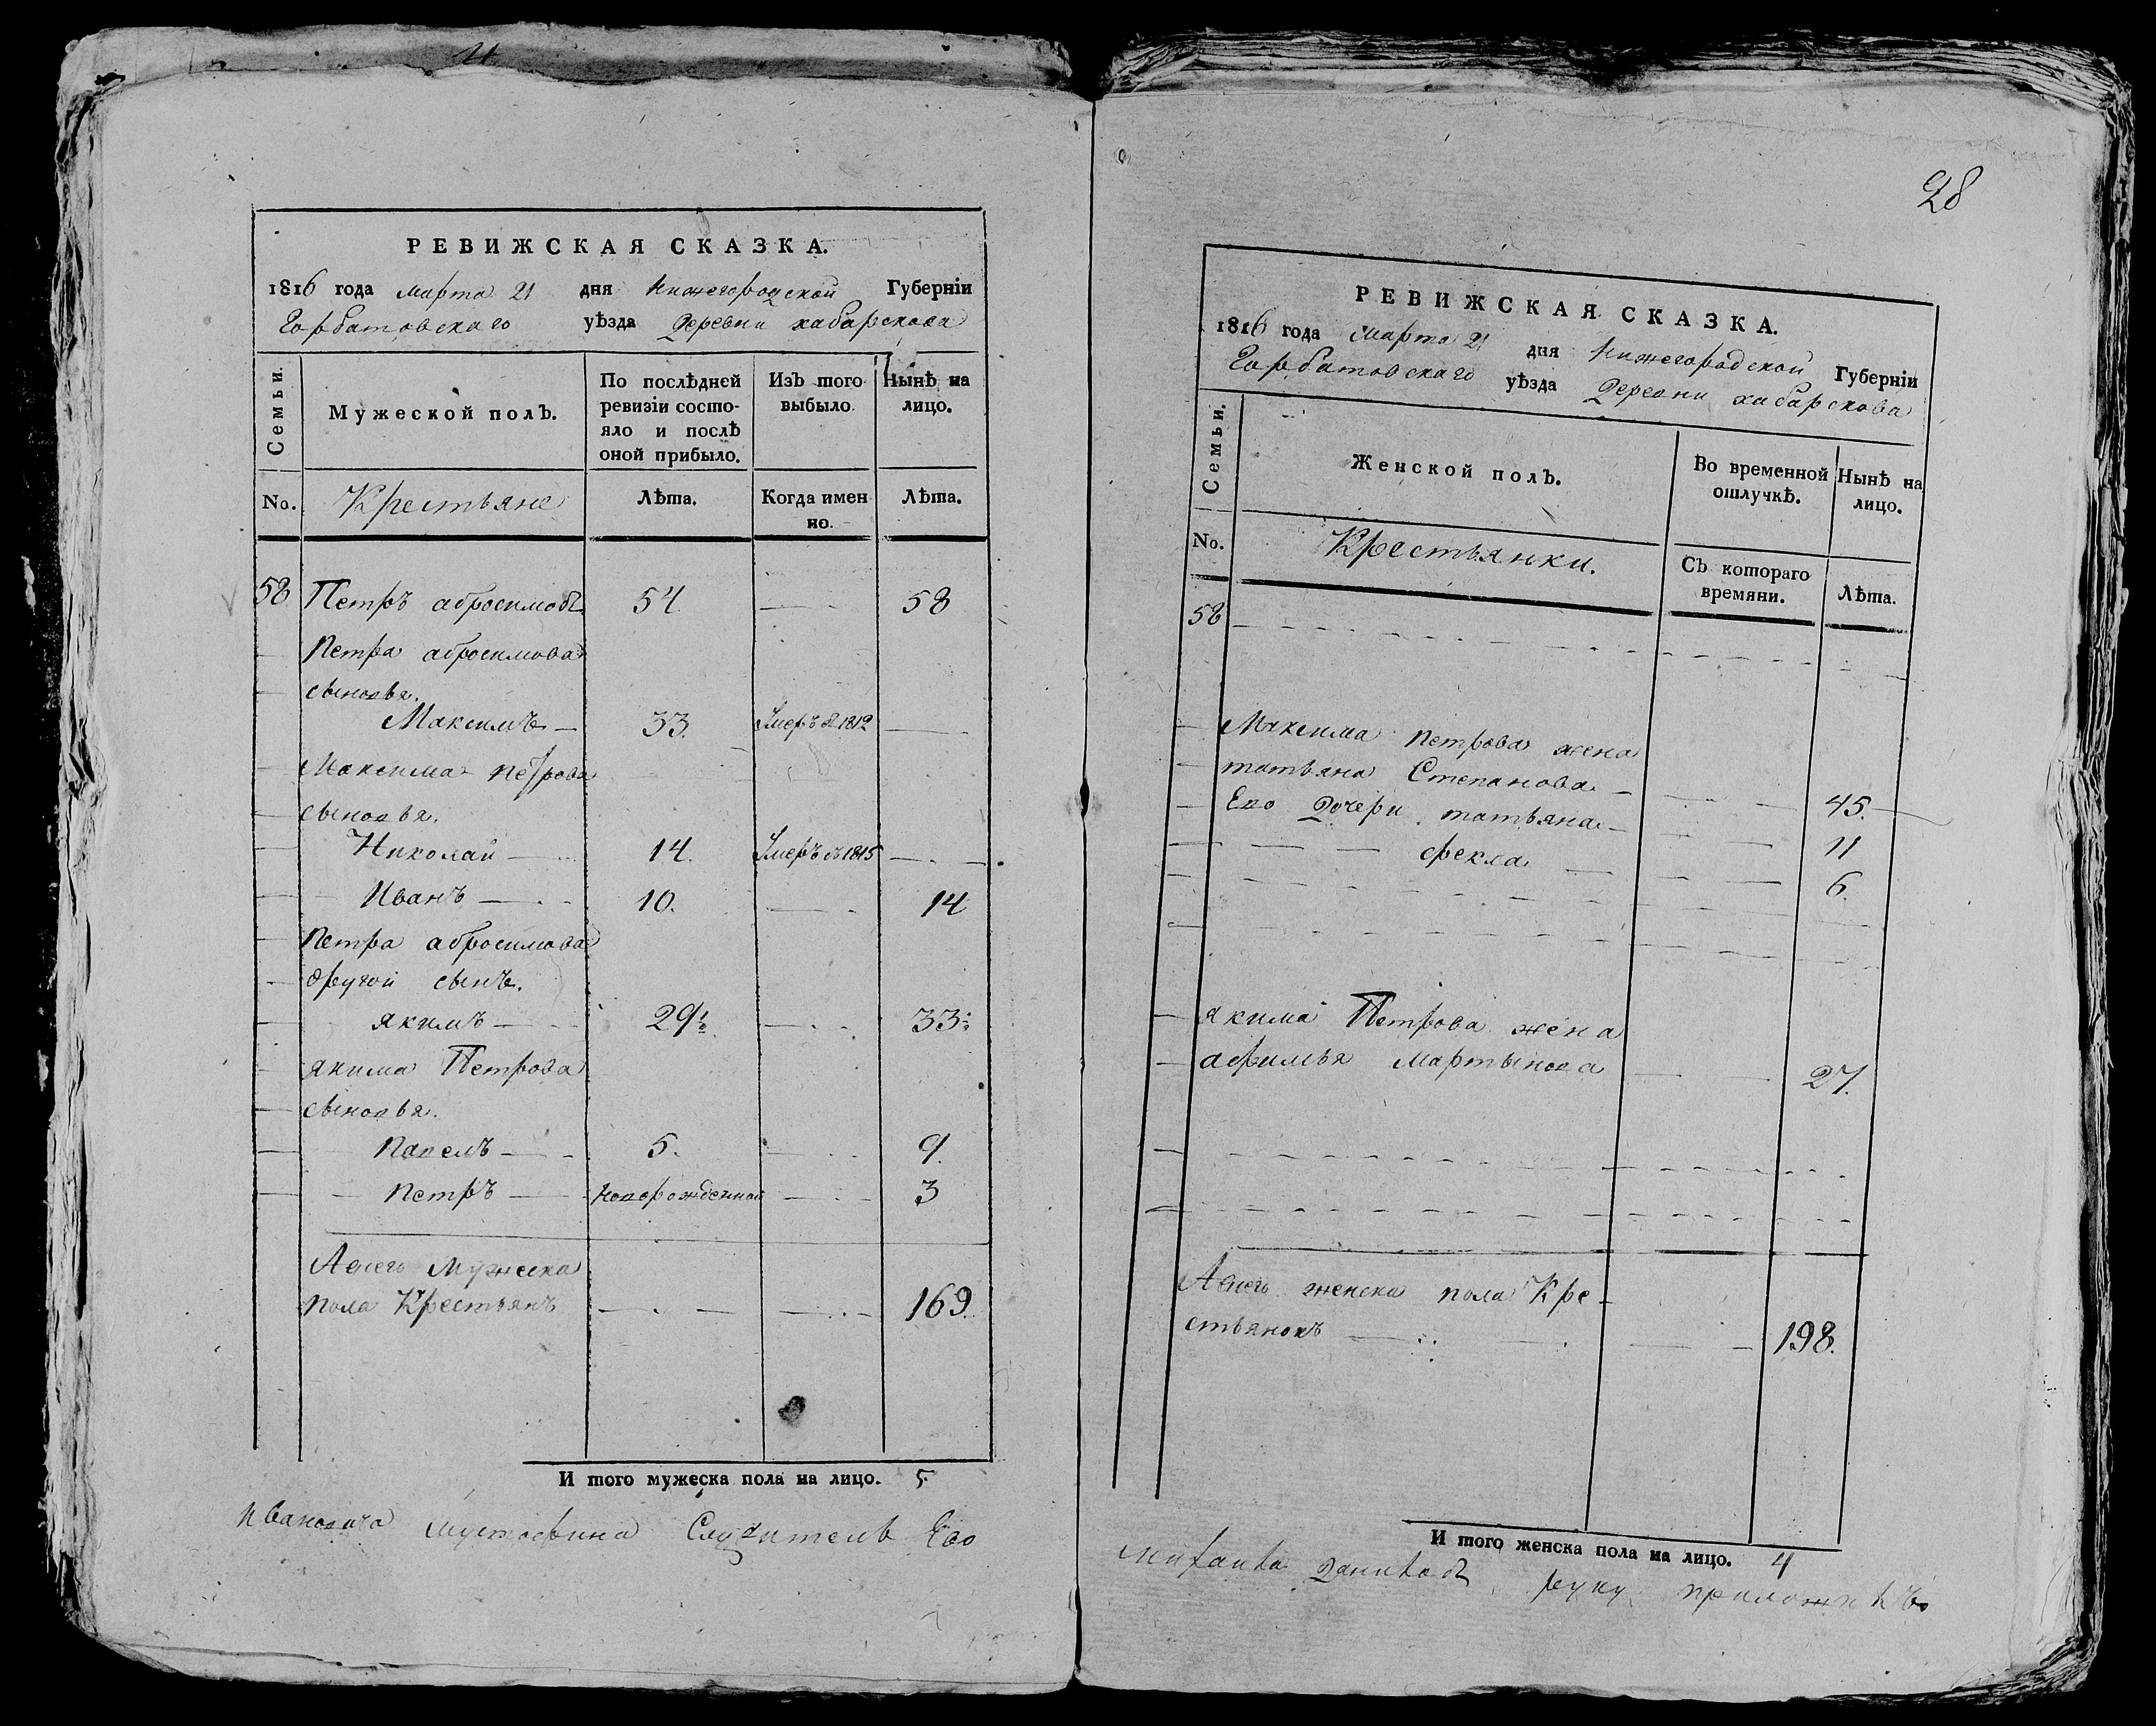 РЕВИЖСКАЯ СКАЗКА.
1816 года марта 21 дня нижегородской Губернїи
Горбатовскаго уѣзда деревни хабарскова
Семьи.
Мужеской полЪ.
По послѣдней ревизїи состояло и послѣ оной прибыло.
ИзЪ того выбыло.
Нынѣ на лицо.
No.
Крестьяне
Лѣта.
Когда именно.
Лѣта.
58 Петръ абросимовъ 54. 58
Петра абросимова
сыновья.
Максимъ 33. Умеръ в 1812
Максима петрова
сыновья.
Николай 14. Умеръ въ 1815
Иванъ 10. 14
Петра абросимова
другой сынъ.
якимъ 29½ 33½
якима Петрова
сыновья.
павелъ 5. 9.
петръ новорожденной 3
Авсего Мужеска
пола Крестьянъ 169.
И того мужеска пола на лицо. 5.
ивановича Служитель Ево
28
РЕВИЖСКАЯ СКАЗКА.
1816 года марта 21 дня нижегородской Губернїи
Горбатовскаго уѣзда деревни хабарскова
Семьи.
Женской полЪ.
Во временной отлучкѣ.
Нынѣ на лицо.
No.
Крестьянки.
СЪ котораго времяни.
Лѣта.
58
Максима петрова жена
татьяна Степанова 45.
Ево дочери татьяна 11
фекла 6.
якима Петрова жена
афимья мартынова 27.
Авсего женска пола Кре-
стьянокъ 198.
И того женска пола на лицо. 4
михаила данилов руку приложилъ